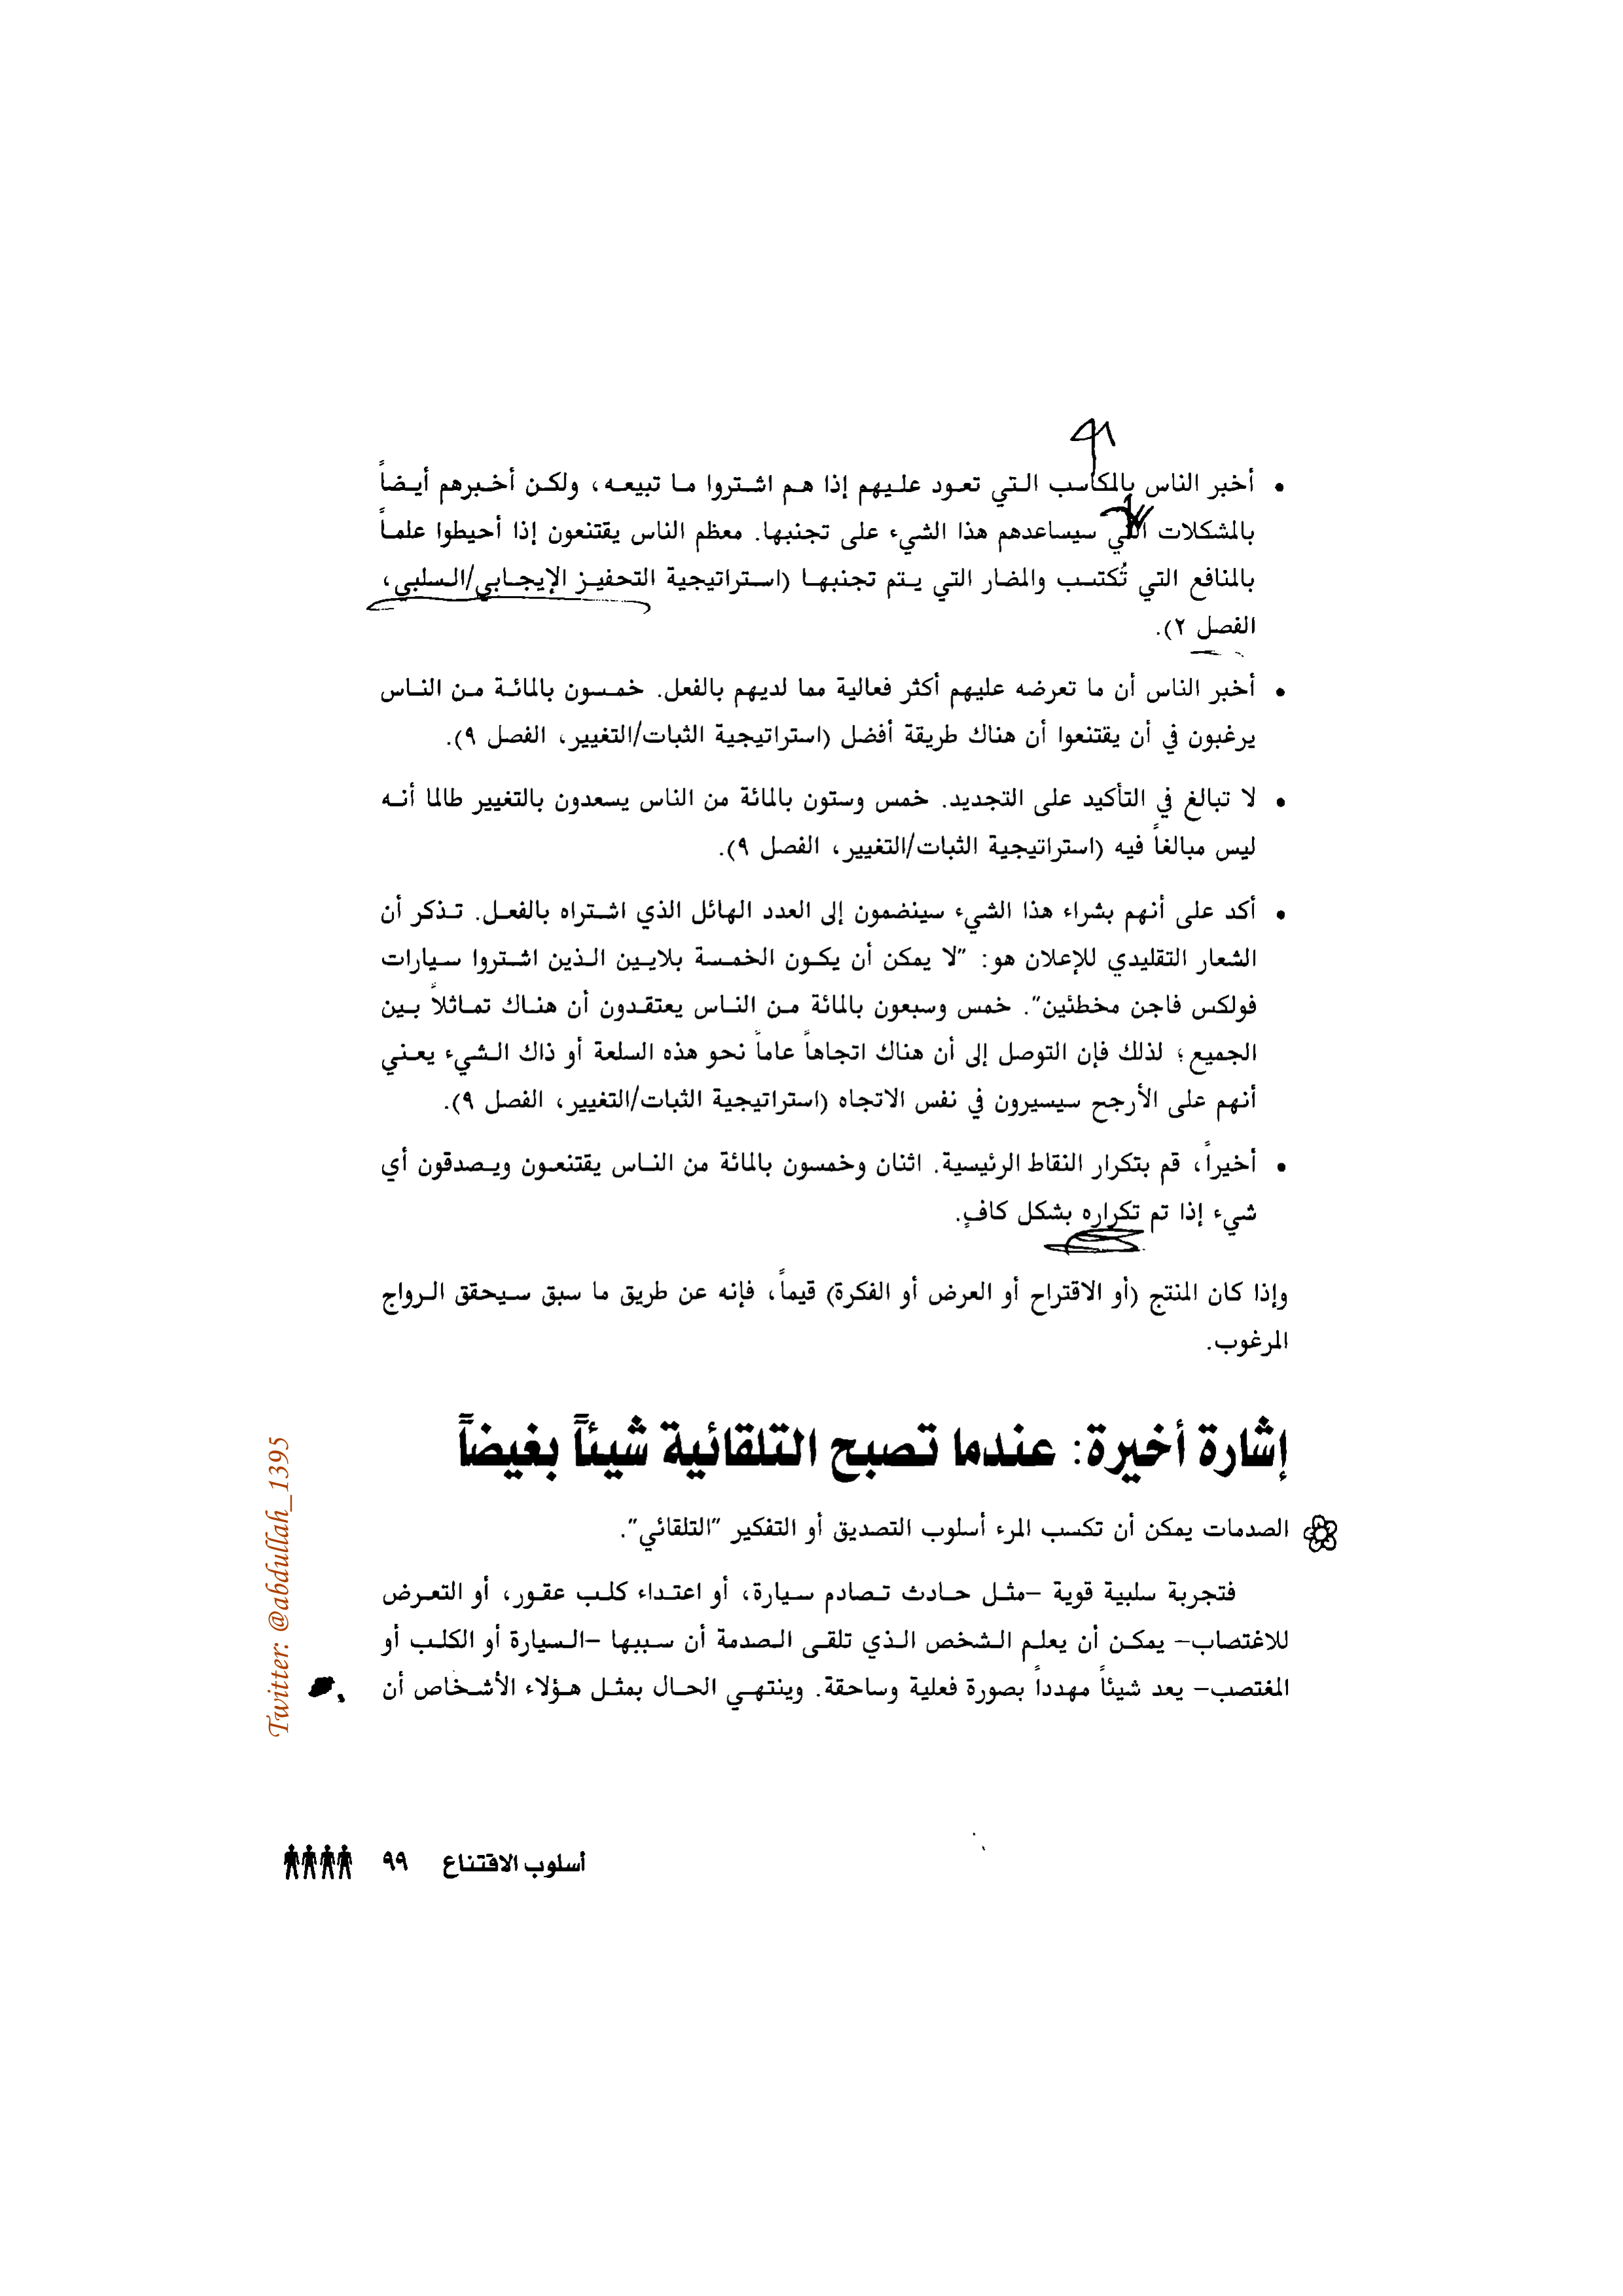 • أخبر الناس بالمكاسب التي تعود عليهم إذا هم اشتروا ما تبيعه، ولكن أخبرهم أيضاً
بالمشكلات التي سيساعدهم هذا الشيء على تجنبها. معظم الناس يقتنعون إذا أحيطوا علماً
بالمنافع التي تُكتسب والمضار التي يتم تجنبها (استراتيجية التحفيز الإيجابي/السلبي،
الفصل ٢).
• أخبر الناس أن ما تعرضه عليهم أكثر فعالية مما لديهم بالفعل. خمسون بالمائة من الناس
يرغبون في أن يقتنعوا أن هناك طريقة أفضل (استراتيجية الثبات/التغيير، الفصل ٩).
• لا تبالغ في التأكيد على التجديد. خمس وستون بالمائة من الناس يسعدون بالتغيير طالما أنه
ليس مبالغاً فيه (استراتيجية الثبات/التغيير، الفصل ٩).
• أكد على أنهم بشراء هذا الشيء سينضمون إلى العدد الهائل الذي اشتراه بالفعل. تذكر أن
الشعار التقليدي للإعلان هو: "لا يمكن أن يكون الخمسة بلايين الذين اشتروا سيارات
فولكس فاجن مخطئين". خمس وسبعون بالمائة من الناس يعتقدون أن هناك تماثلاً بين
الجميع؛ لذلك فإن التوصل إلى أن هناك اتجاهاً عاماً نحو هذه السلعة أو ذاك الشيء يعني
أنهم على الأرجح سيسيرون في نفس الاتجاه (استراتيجية الثبات/التغيير، الفصل ٩).
• أخيراً، قم بتكرار النقاط الرئيسية. اثنان وخمسون بالمائة من الناس يقتنعون ويصدقون أي
شيء إذا تم تكراره بشكل كافٍ.
وإذا كان المنتج (أو الاقتراح أو العرض أو الفكرة) قيماً، فإنه عن طريق ما سبق سيحقق الرواج
المرغوب.
إشارة أخيرة: عندما تصبح التلقائية شيئاً بغيضاً
الصدمات يمكن أن تكسب المرء أسلوب التصديق أو التفكير "التلقائي".
فتجربة سلبية قوية –مثل حادث تصادم سيارة، أو اعتداء كلب عقور، أو التعرض
للاغتصاب– يمكن أن يعلم الشخص الذي تلقى الصدمة أن سببها –السيارة أو الكلب أو
المغتصب– يعد شيئاً مهدداً بصورة فعلية وساحقة. وينتهي الحال بمثل هؤلاء الأشخاص أن
أسلوب الاقتناع ٩٩
Twitter: @abdullah_1395